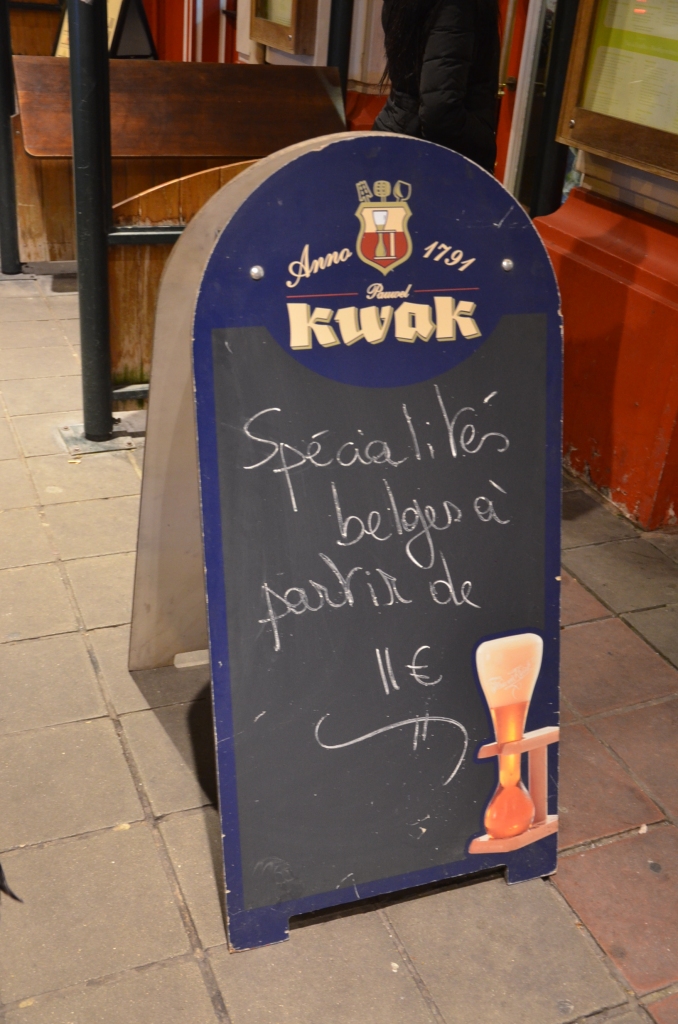 Anno 1791
Pauwel
kwak
Spécialités
belges à
partir de
11€